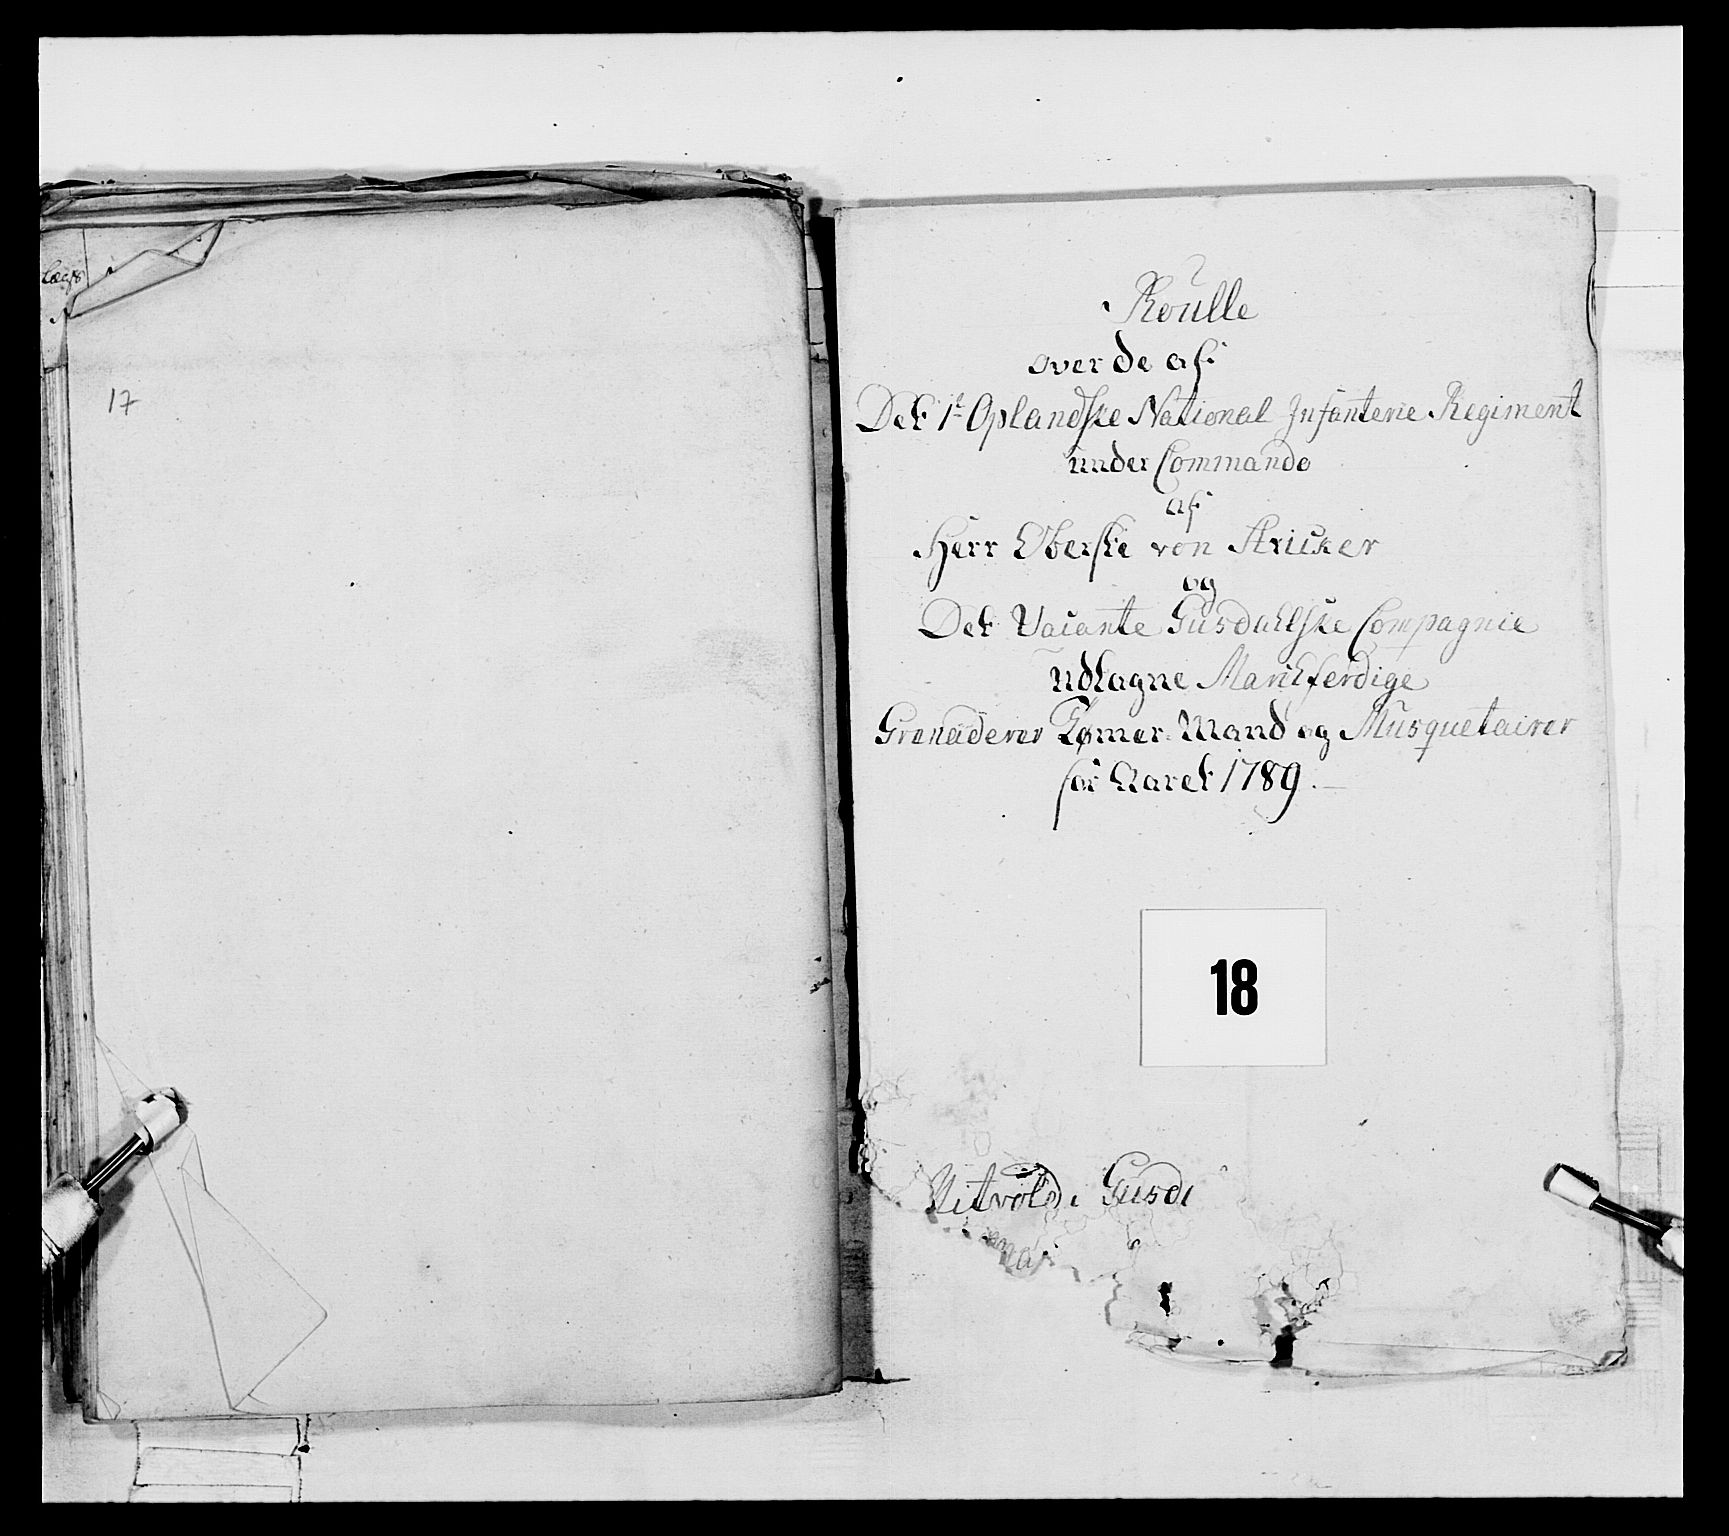 Lægs
17
Roulle
over de af
Det 1ste Oplandske National Infanterie Regiment
under Commando
af
Herr Oberste von Stricker
og
Det Vacante Gusdahlske Compagnie
udtagne Marchferdige
Grenaderer Tømer-Mand og Musquetairer
for Aaret 1789.
18
Gusd